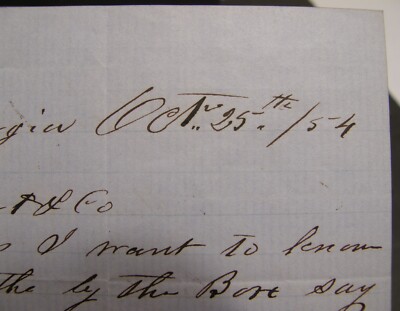 gia Octr. 25th /54
t & Co
s I want to know
the by the Box say